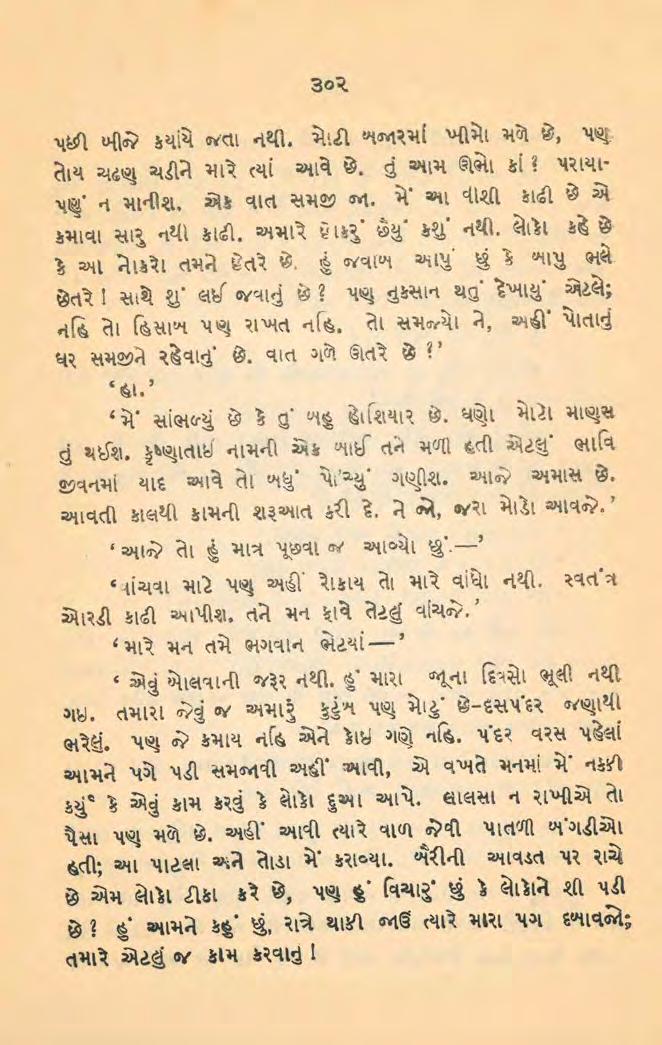 ૩૦૨
પછી બીજે કયાંયે જતા નથી. મોટી બજારમાં ખીમો મળે છે, પણ
તોય ચઢણ ચડીને મારે ત્યાં આવે છે. તું આમ ઊભો કાં ? પરાયા-
પણું ન માનીશ. એક વાત સમજી જા. મેં આ વીશી કાઢી છે એ
કમાવા સારુ નથી કાઢી. અમારે છોકરું છૈયું કશું નથી. લોકો કહે છે
કે આ નોકરો તમને છેતરે છે. હું જવાબ આપું છું કે બાપુ ભલે
છેતરે ! સાથે શું લઈ જવાનું છે ? પણ નુકસાન થતું દેખાયું એટલે;
નહિ તો હિસાબ પણ રાખત નહિ. તો સમજ્યો ને, અહીં પોતાનું
ઘર સમજીને રહેવાનું છે. વાત ગળે ઊતરે છે ?’
‘હા.’
‘મેં સાંભળ્યું છે કે તું બહુ હોશિયાર છે. ઘણો મોટો માણસ
તું થઈશ. કૃષ્ણાતાઈ નામની એક બાઈ તને મળી હતી એટલું ભાવિ
જીવનમાં યાદ આવે તો બધું પો'ચ્યું ગણીશ. આજે અમાસ છે.
આવતી કાલથી કામની શરૂઆત કરી દે. ને જો, જરા મોડો આવજે.’
‘આજે તો હું માત્ર પૂછવા જ આવ્યો છું.—’
‘વાંચવા માટે પણ અહીં રોકાય તો મારે વાંધો નથી. સ્વતંત્ર
ઓરડી કાઢી આપીશ. તને મન ફાવે તેટલું વાંચજે.’
‘મારે મન તમે ભગવાન ભેટયાં—’
‘ એવું બોલવાની જરૂર નથી. હું મારા જૂના દિવસો ભૂલી નથી
ગઇ. તમારા જેવું જ અમારું કુટુંબ પણ મોટું છે-દસપંદર જણાથી
ભરેલું. પણ જે કમાય નહિ એને કોઇ ગણે નહિ. પંદર વરસ પહેલાં
આમને પગે પડી સમજાવી અહીં આવી, એ વખતે મનમાં મેં નક્કી
કર્યું કે એવું કામ કરવું કે લોકો દુઆ આપે. લાલસા ન રાખીએ તો
પૈસા પણ મળે છે. અહીં આવી ત્યારે વાળ જેવી પાતળી બંગડીઓ
હતી; આ પાટલા અને તોડા મેં કરાવ્યા. બૈરીની આવડત પર રાચે
છે એમ લોકો ટીકા કરે છે, પણ હું વિચારું છું કે લોકોને શી પડી
છે ? હું આમને કહું છું, રાત્રે થાકી જાઉં ત્યારે મારા પગ દબાવજો;
તમારે એટલું જ કામ કરવાનું !